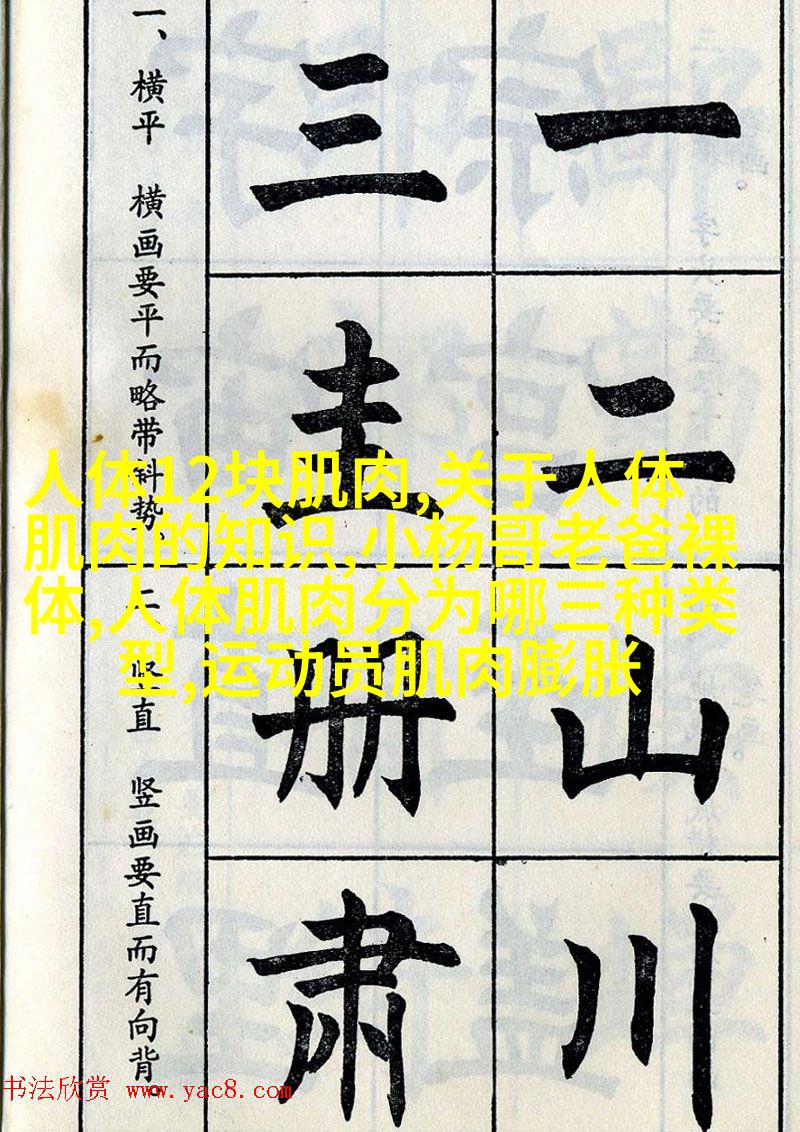 一
二
山
川
三
圭
册
肃
一、横平　横画要平而略带斜势。
二、竖直　竖画要直而有向背。
人体12块肌肉,关于人体
肌肉的知识,小杨哥老爸裸
体,人体肌肉分为哪三种类
型,运动员肌肉膨胀
书法欣赏 www.yac8.com